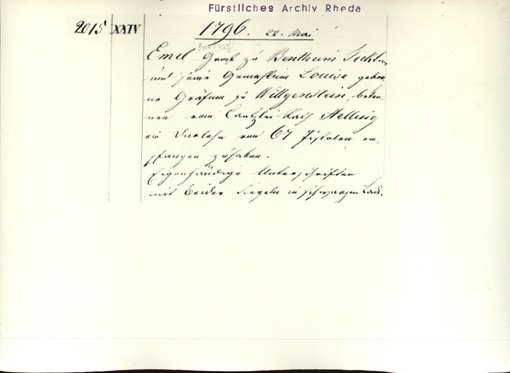 Fürstliches Archiv Rheda
2015 XXIV 1796. 22. Mai
Emil Graf zu Bentheim Tecklen
und seine Gemahlin Louise gebor
ne Gräfinn zu Wittgenstein, beken
nen vom Canzlei-Rath Hellwig
ein Darlehn von 67 Pistolen em-
pfangen zu haben.
Eigenhändige Unterschriften
mit beider Siegeln in schwarzem Lack.